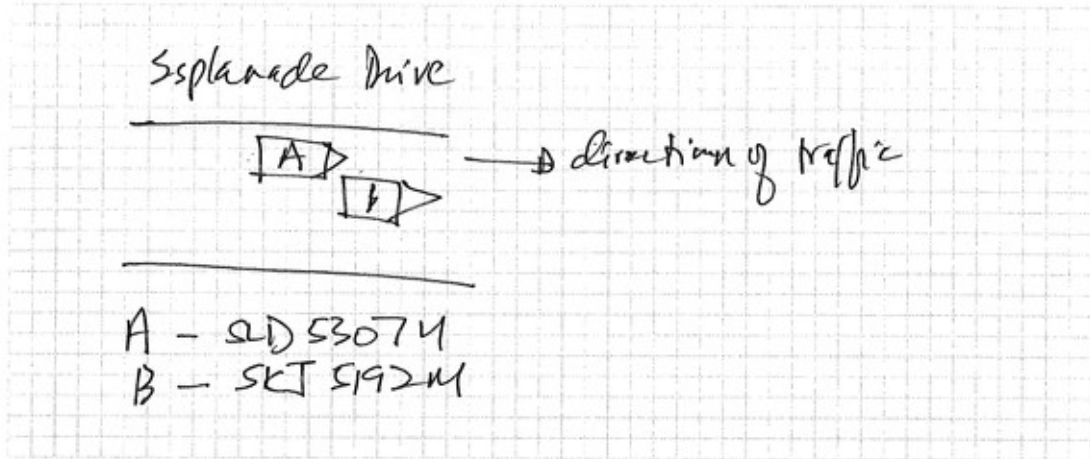 Esplanade Drive
A
B
direction of traffic
A - SLD 5307U
B - SKJ 5192M